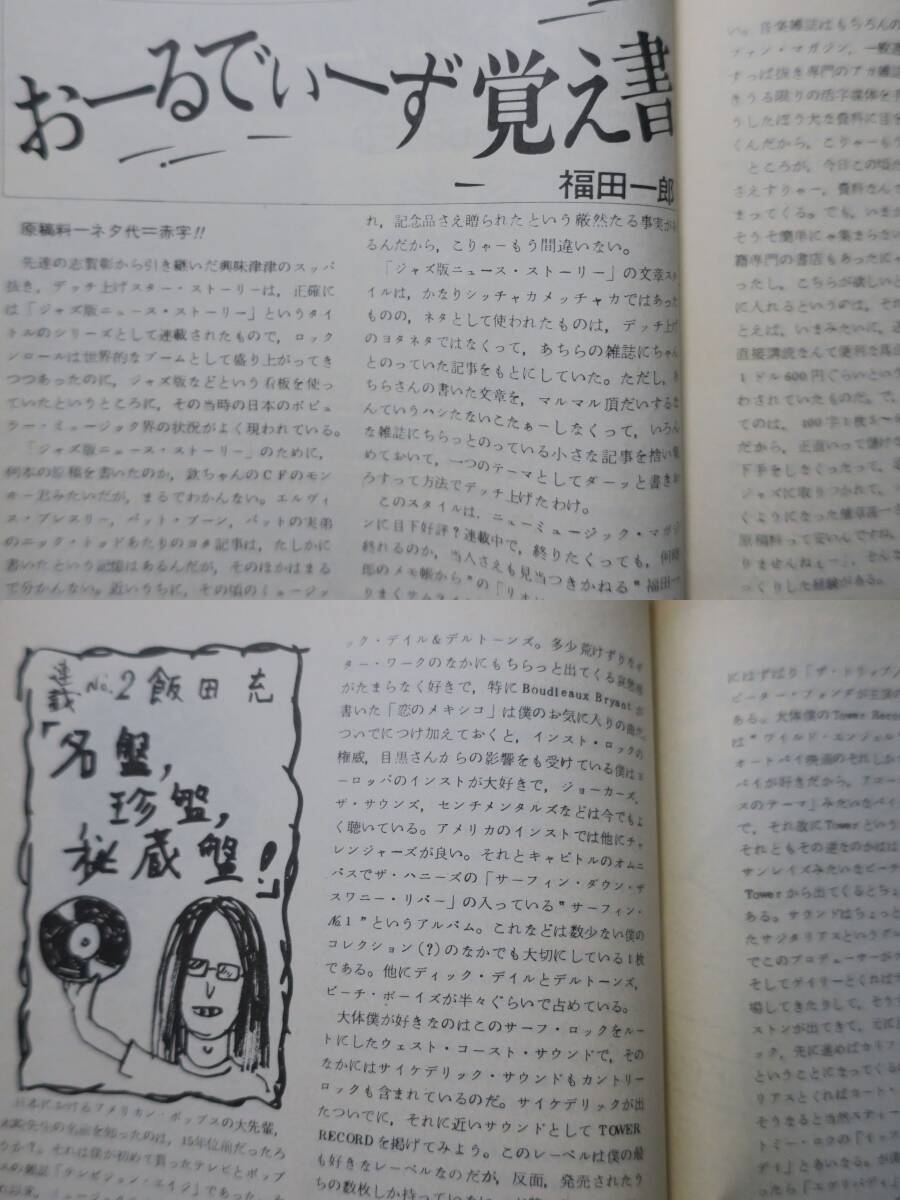 おーるでぃーず覚え書
福田一郎
原稿料−ネタ代＝赤字!!
先達の志賀彰から引き継いだ興味津津のスッパ
抜き，デッチ上げスター・ストーリーは，正確に
は「ジャズ版ニュース・ストーリー」というタイ
トルのシリーズとして連載されたもので，ロック
ンロールは世界的なブームとして盛り上がってき
つつあったのに，ジャズ版などという看板を使っ
ていたというところに，その当時の日本のポピュ
ラー・ミュージック界の状況がよく現われている。
「ジャズ版ニュース・ストーリー」のために，
何本の原稿を書いたのか，欽ちゃんのＣＦのモン
ホー君みたいだが，まるでわかんない。エルヴィ
ス・プレスリー，パット・ブーン，パットの実弟
のニック・トッドあたりのヨタ記事は，たしかに
書いたという記憶はあるんだが，そのほかはまる
で分かんない。近いうちに，その頃のミュージッ
れ，記念品さえ贈られたという厳然たる事実が
るんだから，こりゃーもう間違いない。
「ジャズ版ニュース・ストーリー」の文章ス
イルは，かなりシッチャカメッチャカではあった
ものの，ネタとして使われたものは，デッチ上げ
のヨタネタではなくって，あちらの雑誌にちゃん
とのっていた記事をもとにしていた。ただし，
ちらさんの書いた文章を，マルマル頂だいする
んていうハシたないこたぁーしなくって，いろん
な雑誌にちらっとのっている小さな記事を拾い
めておいて，一つのテーマとしてダーッと書き
ろすって方法でデッチ上げたわけ。
このスタイルは，ニューミュージック・マガジ
ンに目下好評？連載中で，終りたくっても，何時
終れるのか，当人さえも見当つきかねる“福田一
郎のメモ帳から”の「リオ
い。音楽雑誌はもちろんの
ファン・マガジン，一般
すっぱ抜き専門のアカ雑誌
きうる限りの活字媒体を
うしたぼう大な資料に目を
くんだから，こりゃーもう
ところが，今日この頃だ
さえすりゃー，資料なんて
まってくる。でも，いまか
そうそ簡単にゃ集まらない
籍専門の書店もあったにゃ
ったし，こちらが欲しいと
に入れるというのは，それ
とえば，いまみたいに，
直接購読なんて便利な
１ドル600円ぐらいという
わされていたものだ。で，
てのは，400字１枚
だから，正直いって儲け
下手をしなくたって，
ジャズに取りつかれて，
くようになった
原稿料って安いんですね
りませんねぇー
つくりした経験がある。
連載No.2 飯田充
「名盤，
珍盤，
秘蔵盤！」
日本におけるアメリカン・ポップスの大先輩，
先生の名前を知ったのは，15年位前だったろ
うか？。それは僕が初めて買ったテレビとポップ
スの雑誌「テレビジョン・エイジ」であった。
ック・デイル＆デルトーンズ。多少荒けずりなギ
ター・ワークのなかにもちらっと出てくる哀愁感
がたまらなく好きで，特にBoudleaux Bryantが
書いた「恋のメキシコ」は僕のお気に入りの曲だ。
ついでにつけ加えておくと，インスト・ロックの
権威，目黒さんからの影響をも受けている僕はヨ
ーロッパのインストが大好きで，ジョーカーズ，
ザ・サウンズ，センチメンタルズなどは今でもよ
く聴いている。アメリカのインストでは他にチャ
レンジャーズが良い。それとキャピトルのオムニ
バスでザ・ハニーズの「サーフィン・ダウン・ザ
スワニー・リバー」の入っている“サーフィン・
№１”というアルバム。これなどは数少ない僕の
コレクション（？）のなかでも大切にしている１枚
である。他にディック・デイルとデルトーンズ，
ビーチ・ボーイズが半々ぐらいで占めている。
大体僕が好きなのはこのサーフ・ロックをルー
トにしたウェスト・コースト・サウンドで，その
なかにはサイケデリック・サウンドもカントリー
ロックも含まれているのだ。サイケデリックが出
たついでに，それに近いサウンドとして TOWER
RECORDを掲げてみよう。このレーベルは僕の最
も好きなレーベルなのだが，反面，発売されたう
ちの数枚しか持っていない
にはずばり「ザ・トリップ
ピーター・フォンダが主演の
ある。大体僕のTower Reco
は“ワイルド・エンジェル
オートバイ映画のそれしか
バイが好きだから，
スのテーマ」みたいなバイ
で，それ故にTowerという
それともその逆なのかは
サンレイズみたいなビーチ
Towerから出てくるとちょ
ある。サウンドはちょっと
たサジタリアスというグル
でこのプロデューサーが
そしてゲイリーとくれば
場してきたりして，そう
ストンが出てきて，元に
ック，先に進めばカリフ
ということになってくる
リアスとくればカート・
そうなると当然スティー
トミー・ロウの「
デモ」とあいなる。が
ったら「エブリバディ